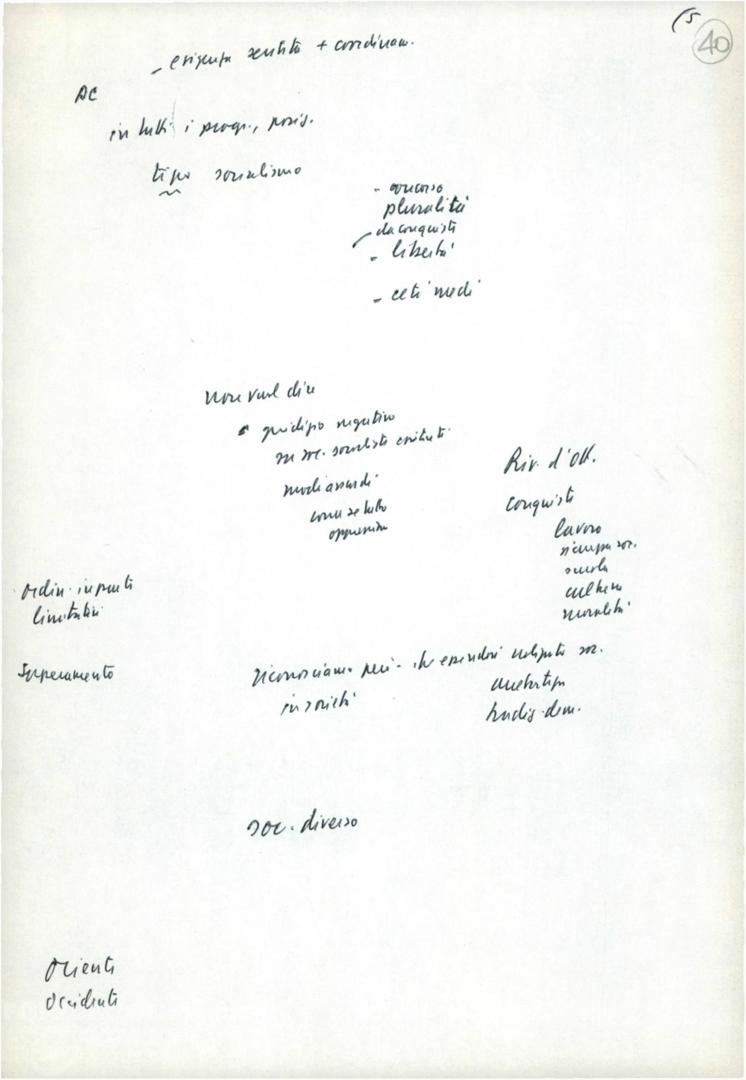 (5
40
- esigenza sentita + coordinam.
AC
in tutti i progr., posiz.
tipo socialismo
- concorso
pluralità
da conquiste
- libertà
- ceti medi
non vuol dire
giudizio negativo
su soc. socialiste esistenti
modi assurdi
come se tutto
oppressione
Riv. d'Ott.
conquiste
lavoro
sicurezza soc.
scuola
cultura
moralità
ordin. in parte
limitativi
Superamento
riconosciamo però - che essendosi sviluppato soc.
in società
arretratezza
tradiz. dem.
soc. diverso
Oriente
Occidente